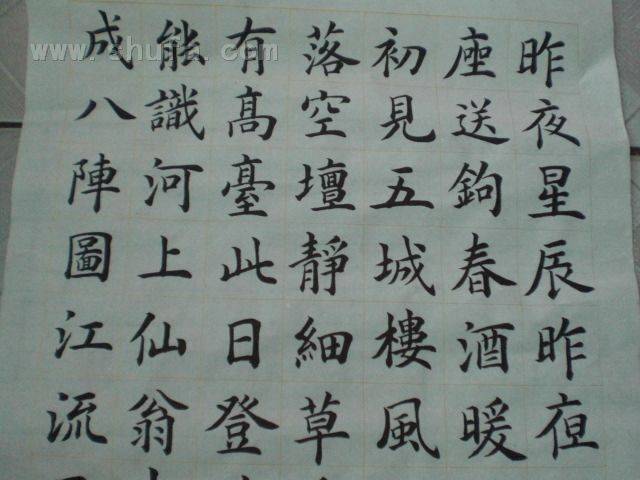 昨夜星辰昨夜
座送鉤春酒暖
初見五城樓風
落空壇靜細草
有高臺此日登
能識河上仙翁
成八陣圖江流